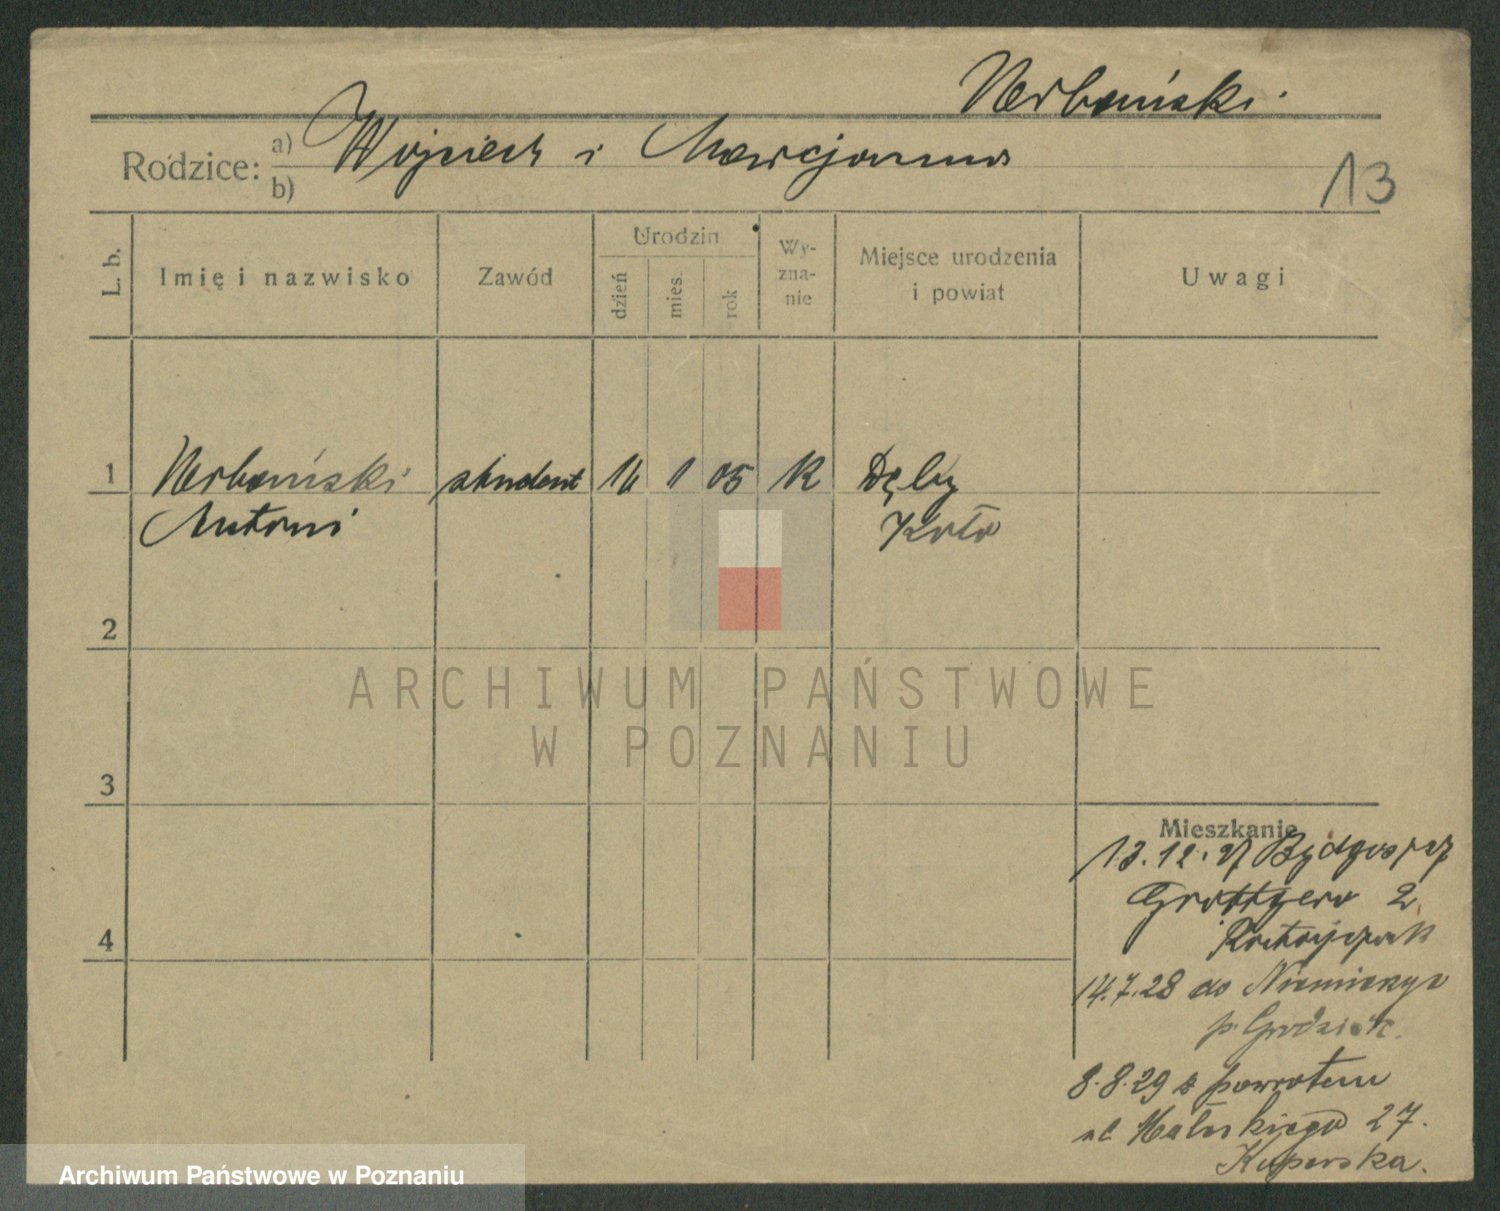 Nerbański.
Rodzice: a) Wojciech i Marcjanna
b)
13
L. b.
Imię i nazwisko
Zawód
Urodzin
dzień
mies.
rok
Wy-
zna-
nie
Miejsce urodzenia
i powiat
Uwagi
1 Nerbański student 14 1 05 K Dęby
Antoni Koło
2
3
4
Mieszkanie
13.12.27 Bydgoszcz
Grottgera 2
Ratajczak
14.7.28 do Niemierzyc
p. Grodzisk.
8.8.29 z powrotem
ul. 27.
Kuperska.
ARCHIWUM PAŃSTWOWE
W POZNANIU
Archiwum Państwowe w Poznaniu